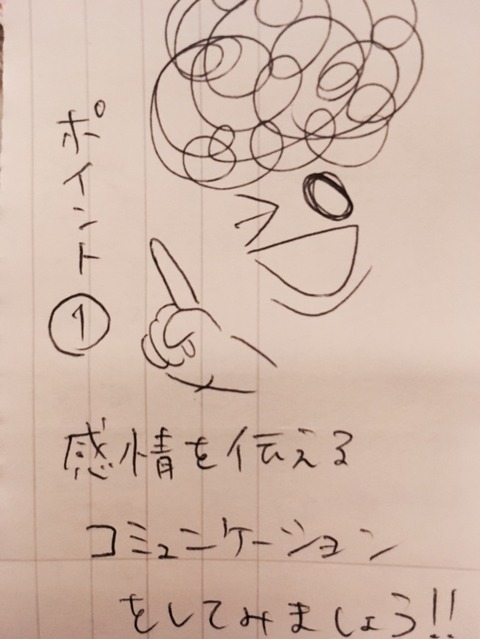 ポイント①
感情を伝える
コミュニケーション
をしてみましょう!!